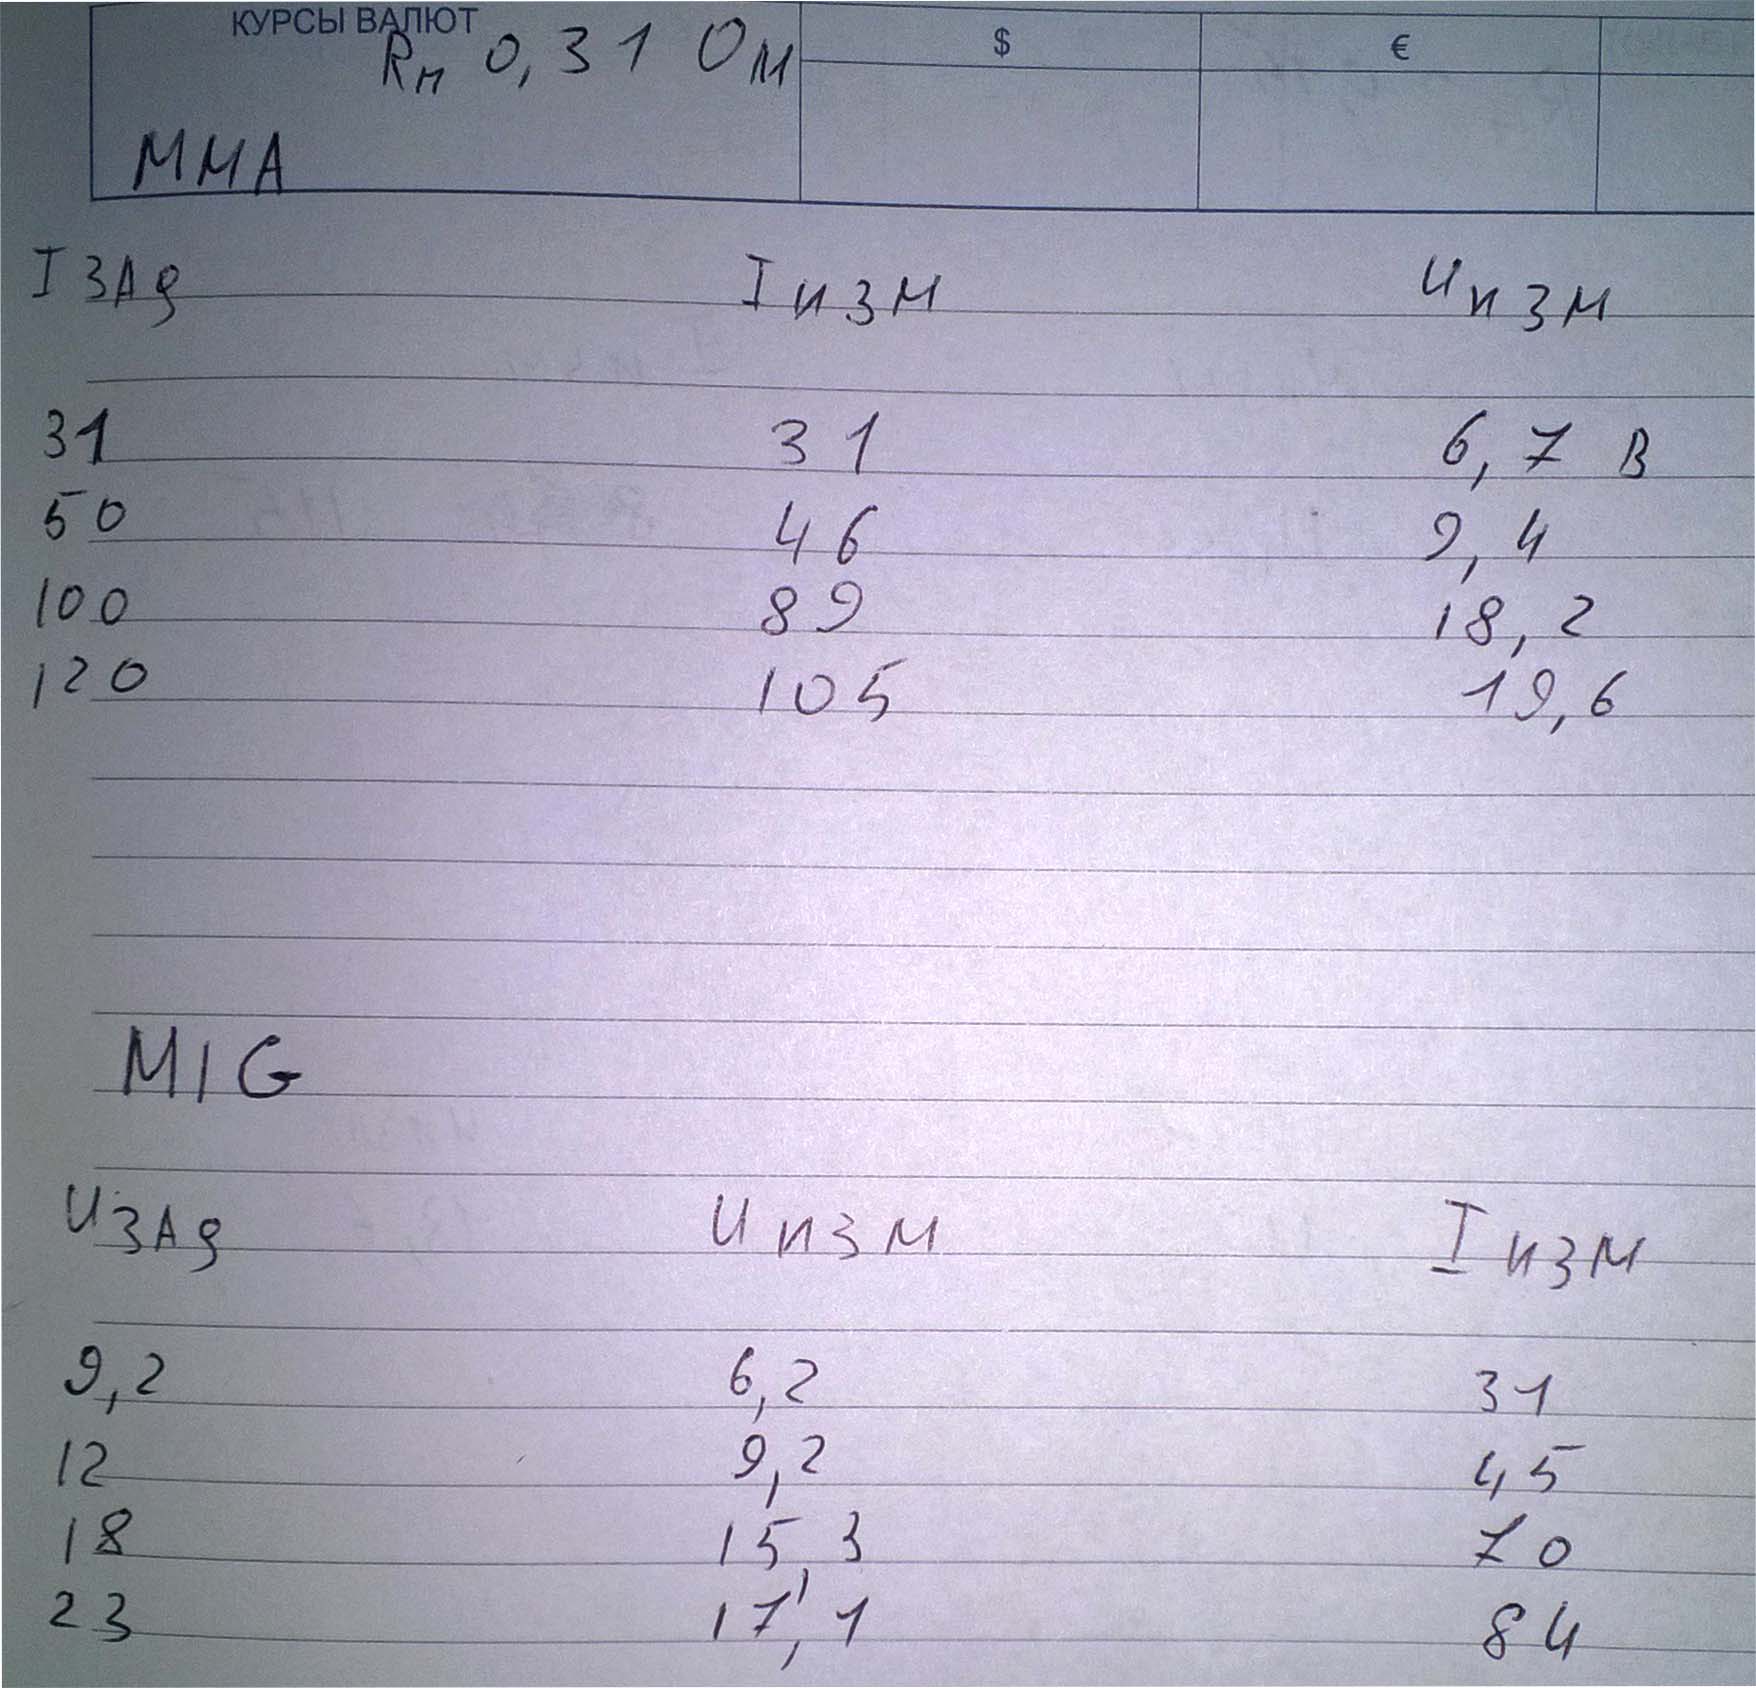 КУРСЫ ВАЛЮТ $ €
Rн 0,31 Ом
ММА
I зад I изм U изм
31 31 6,7 В
50 46 9,4
100 89 18,2
120 105 19,6
MIG
U зад U изм I изм
9,2 6,2 31
12 9,2 45
18 15,3 70
23 17,1 84